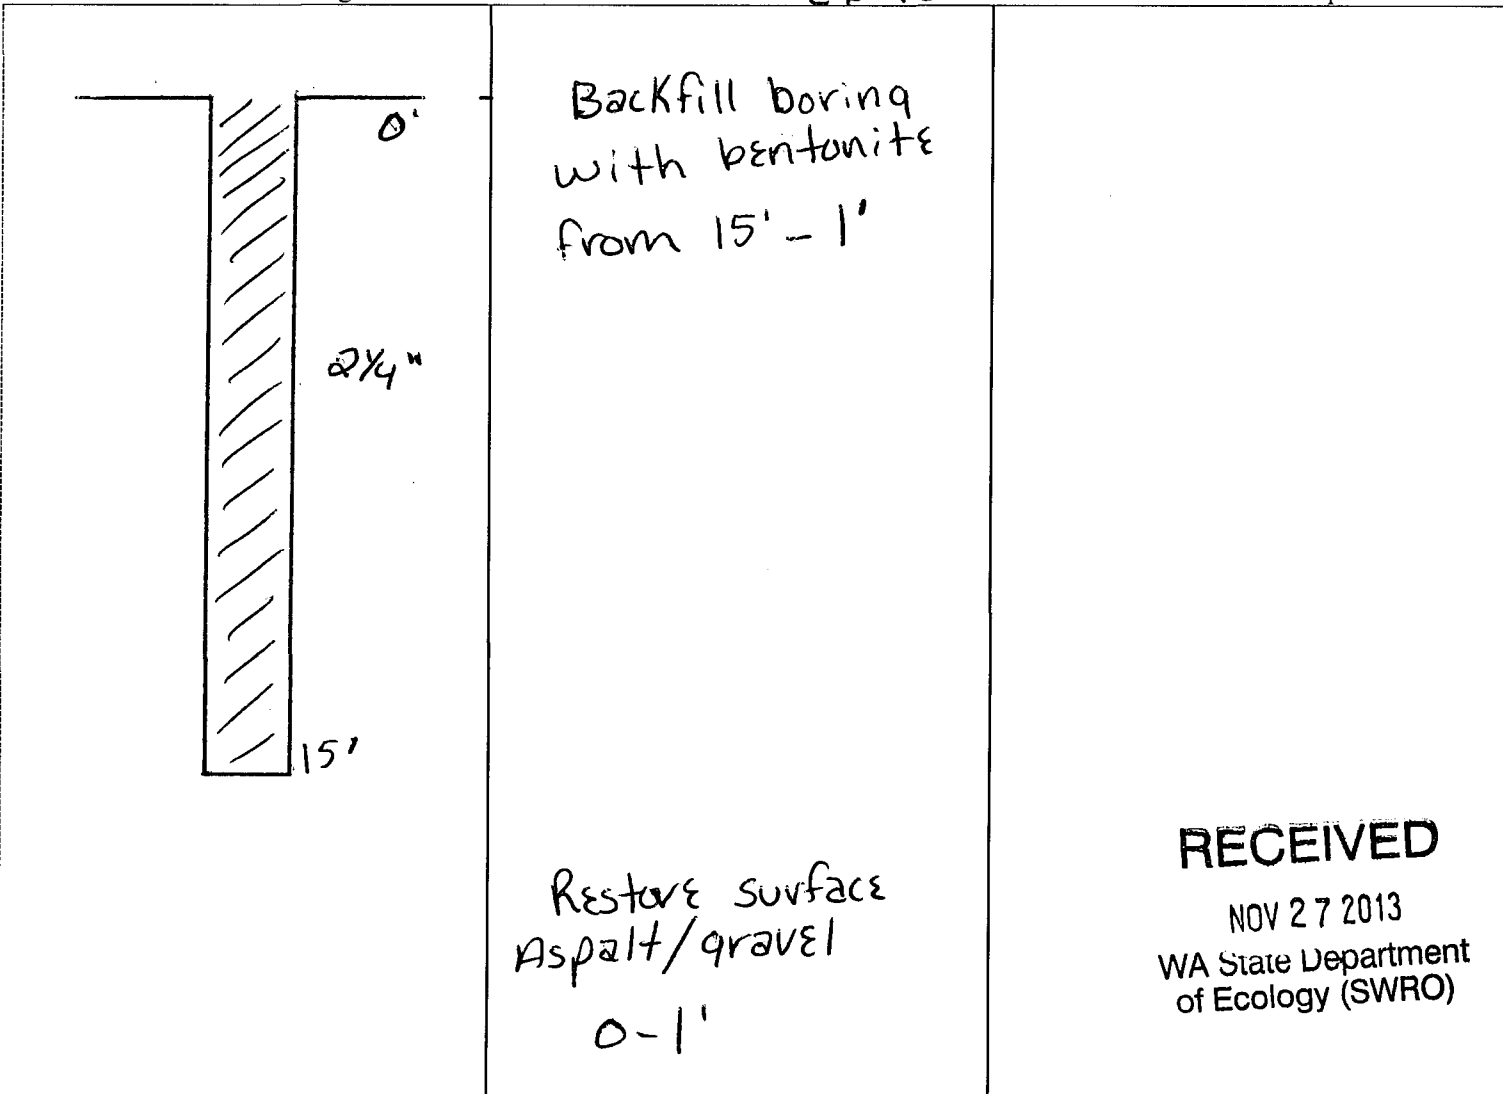 0'
2 1/4"
15'
Backfill boring
with bentonite
from 15' - 1'
Restore surface
Aspalt/gravel
0-1'
RECEIVED
NOV 27 2013
WA State Department
of Ecology (SWRO)